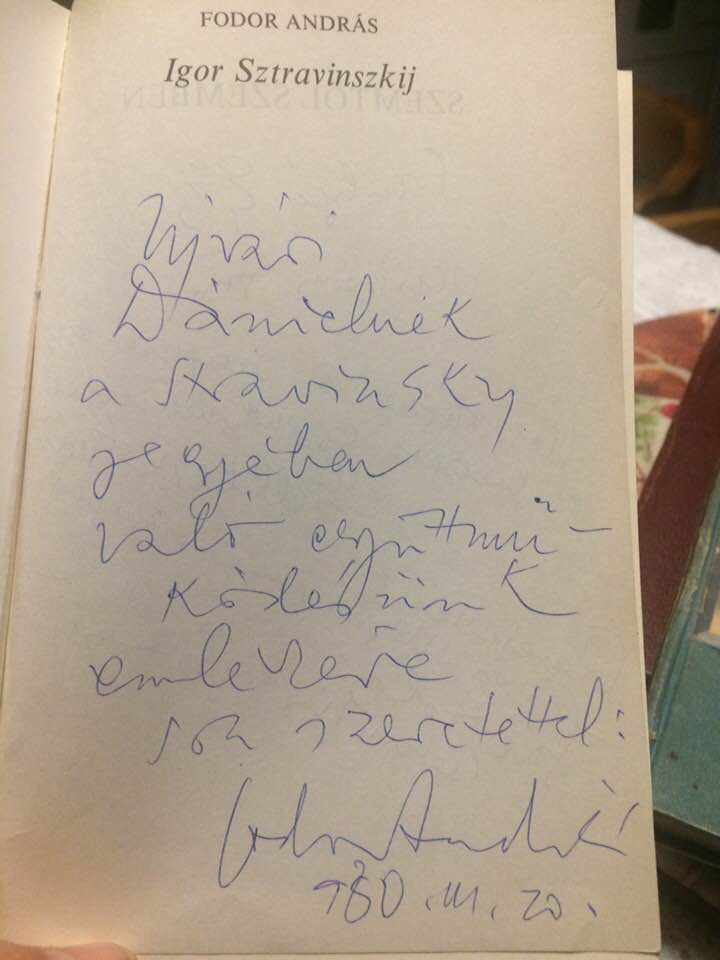 FODOR ANDRÁS
Igor Sztravinszkij
SZEMTŐL SZEMBEN
Ujvári
Dánielnek
a Stravinsky
jegyében
való együttmű-
ködésünk
emlékére
sok szeretettel:
Fodor András
980. III. 20.